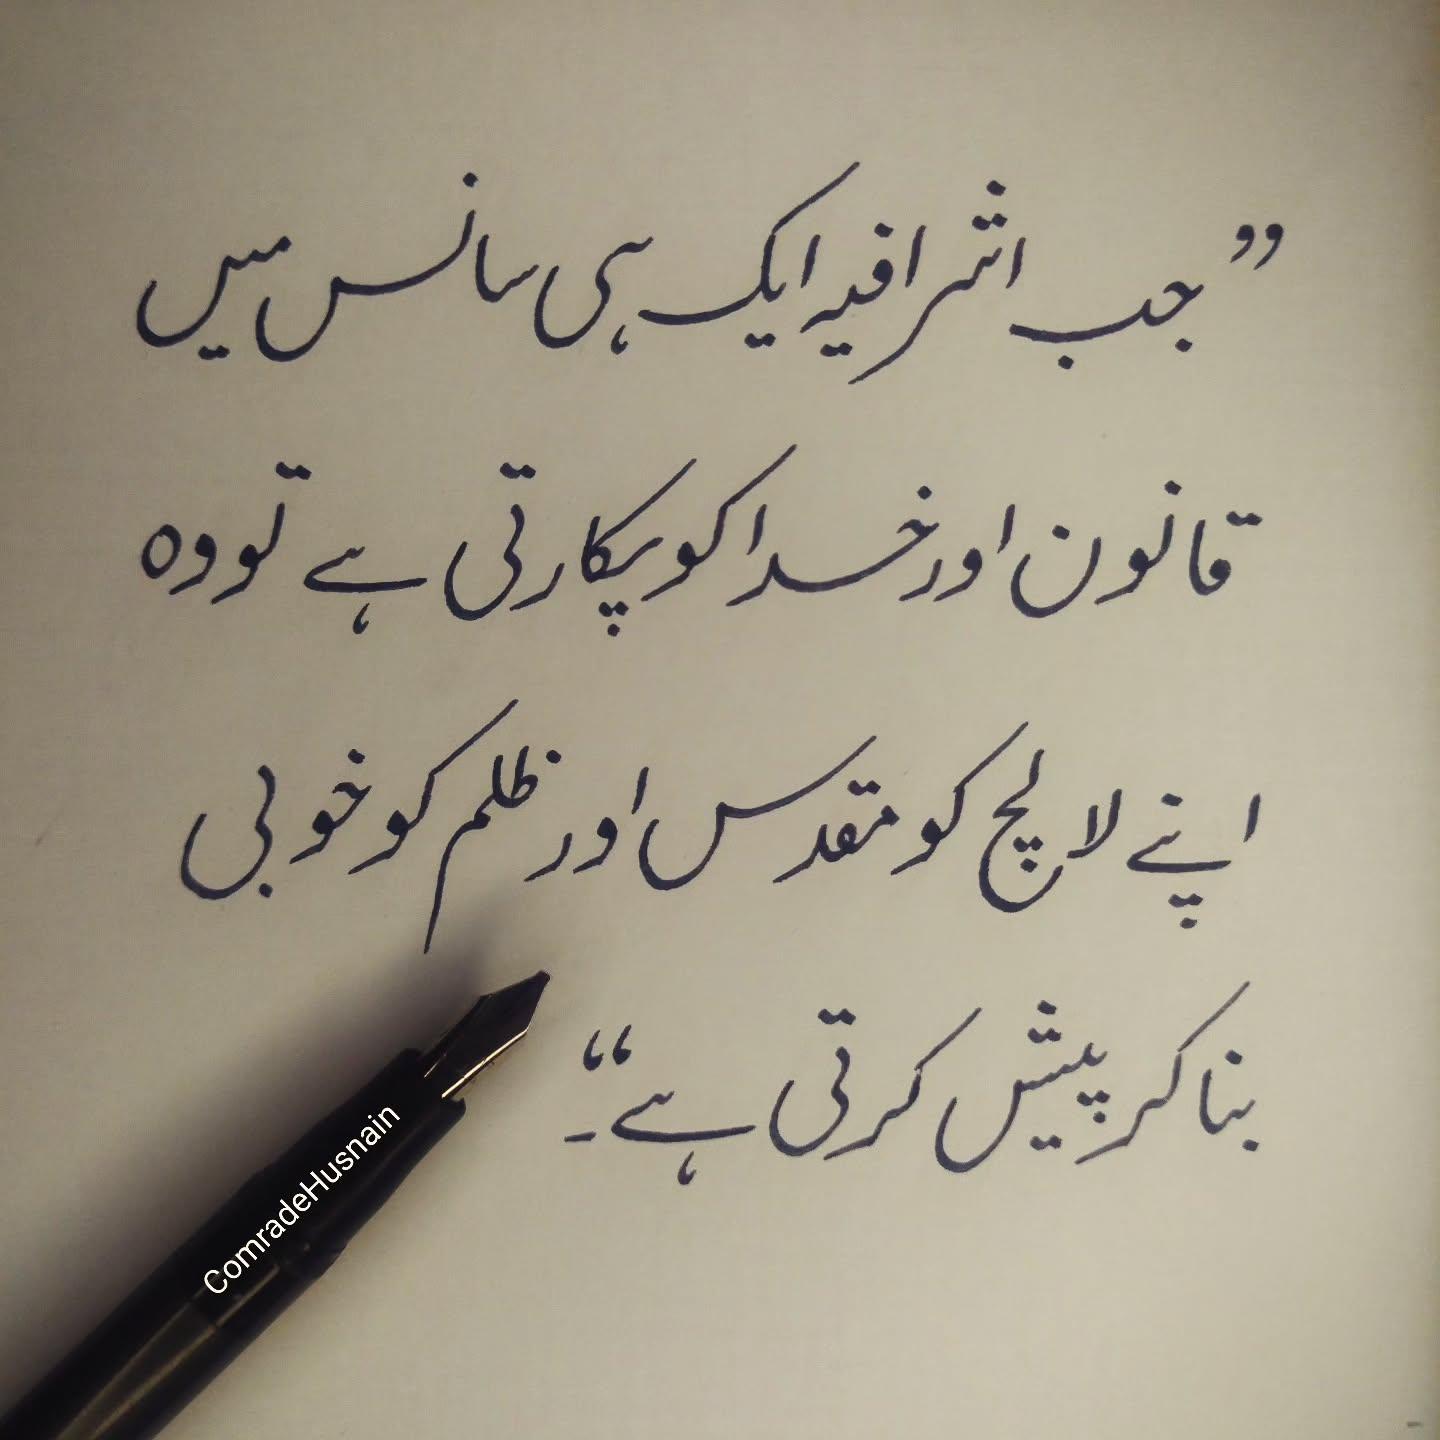 ”جب اشرافیہ ایک ہی سانس میں
قانون اور خدا کو پکارتی ہے تو وہ
اپنے لالچ کو مقدس اور ظلم کو خوبی
بنا کر پیش کرتی ہے۔“
ComradeHusnain